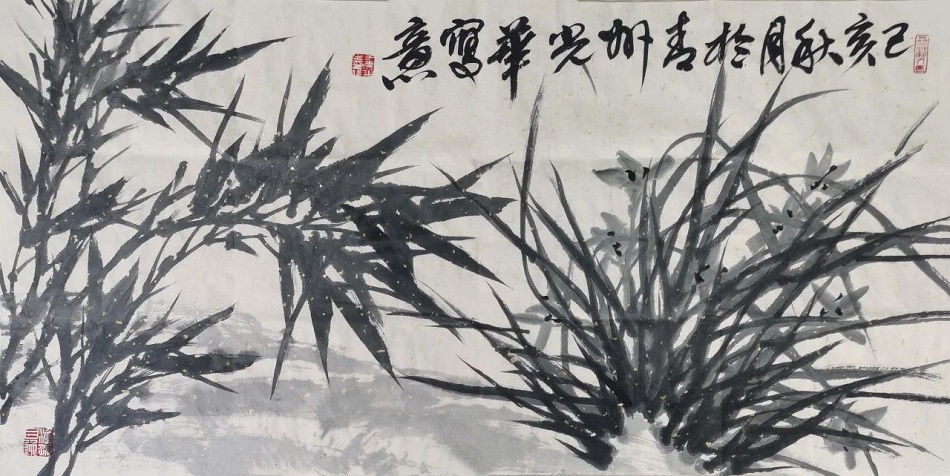 己亥秋月於青州光華寫意